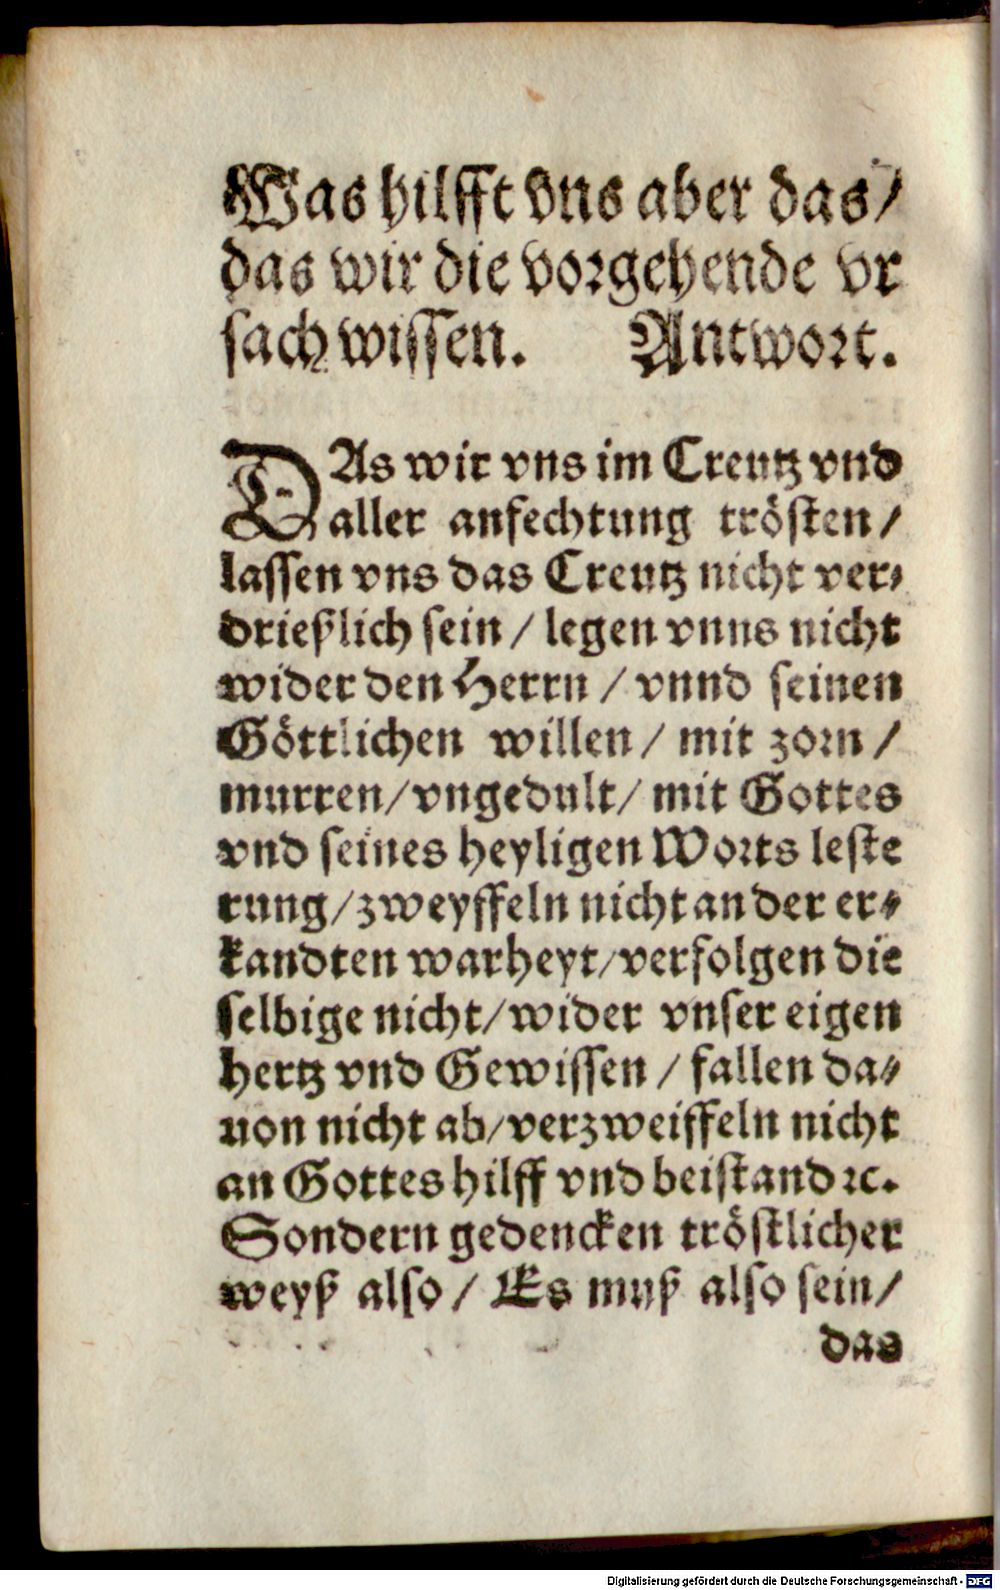 Was hilfft vns aber das/
das wir die vorgehende vr
sach wissen. Antwort.
DAs wir vns im Creutz vnd
aller anfechtung trösten/
lassen vns das Creutz nicht ver-
drießlich sein / legen vnns nicht
wider den Herrn / vnnd seinen
Göttlichen willen / mit zorn /
murren/ vngedult/ mit Gottes
vnd seines heyligen Worts leste
rung/ zweyffeln nicht an der er-
kandten warheyt/ verfolgen die
selbige nicht/ wider vnser eigen
hertz vnd Gewissen / fallen da-
uon nicht ab/ verzweiffeln nicht
an Gottes hilff vnd beistand ꝛc.
Sondern gedencken tröstlicher
weyß also / Es muß also sein/
das
Digitalisierung gefördert durch die Deutsche Forschungsgemeinschaft - DFG